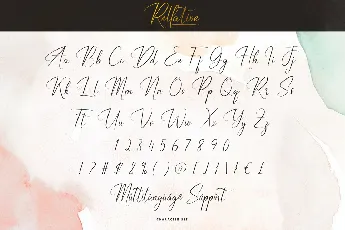 Relfative
Aa Bb Cc Dd Ee Ff Gg Hh Ii Jj
Kk Ll Mm Nn Oo Pp Qq Rr Ss
Tt Uu Vv Ww Xx Yy Zz
1 2 3 4 5 6 7 8 9 0
! ? # $ % ( ) @ [ ] € £
Multilanguage Support
CHARACTER SET